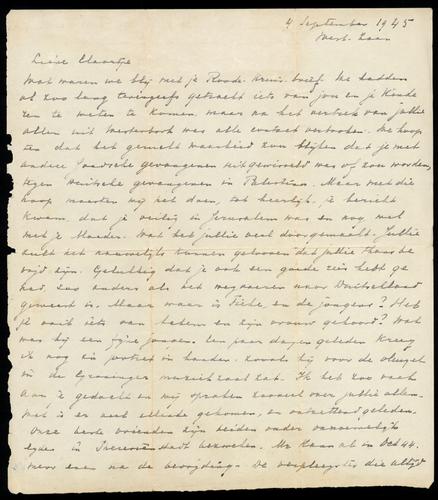 4 September 1945
West. Laan
Lieve Klaartje
Wat waren we blij met je Roode Kruis brief. We hadden
al zoo lang tevergeefs getracht iets van jou en je Kinde
ren te weten te komen, maar na het vertrek van jullie
allen uit Westerbork was alle contact verbroken. We hoop
ten dat het gerucht waarheid zou blijken dat je met
andere Joodsche gevangenen uitgewisseld was of zou worden,
tegen Duitsche gevangenen in Palestina. Maar met die
hoop moesten wij het doen, tot heerlijk, je bericht
kwam, dat je veilig in Jerusalem was en nog wel
met je Moeder. Wat het jullie veel doorgemaakt. Jullie
zult het nauwelijks kunnen gelooven dat jullie thans be
vrijd zijn. Gelukkig dat je ook een goede reis hebt ge
had, zoo anders als het wegvoeren naar Duitschland
geweest is. Maar waar is en de jongens? Heb
je ooit iets van en zijn vrouw gehoord? Wat
was hij een fijne jongen. Een paar dagen geleden kreeg
ik nog zijn potret in handen zooals hij voor de vleugel
in de Groninger muziekzaal zat. Ik heb zoo vaak
aan je gedacht en wij spraken zooveel over jullie allen.
Wat is er veel ellende gekomen, en ontzettend geleden.
Onze beste vrienden zijn beiden onder
in Theresienstadt bezweken. Mr. Kaan al in Oct 44.
Mevr een na de bevrijding. De verpleegster die altijd